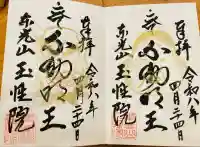 奉拝
令和八年
四月二十四日
不動明王
東光山
玉性院
奉拝
令和八年
四月二十四日
不動明王
東光山
玉性院